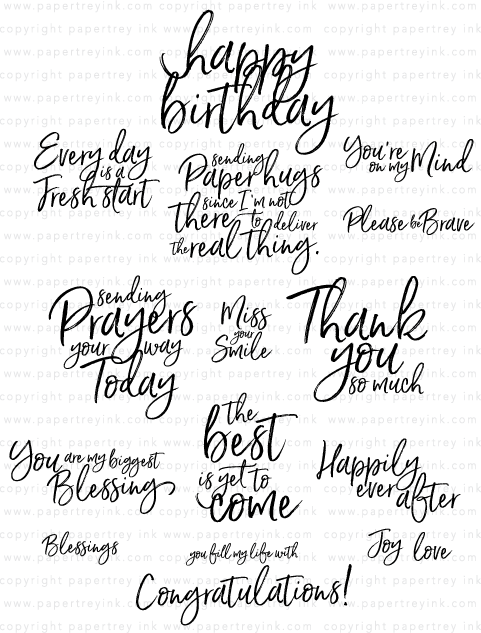 happy
birthday
Every day
is a
Fresh start
sending
Paper hugs
since I'm not
there to deliver
the real thing.
You're
on my Mind
Please be Brave
sending
Prayers
your way
Today
Miss
your
Smile
Thank
you
so much
You are my biggest
Blessing
the
best
is yet to
come
Happily
ever after
Blessings
you fill my life with
Joy love
Congratulations!
copyright papertrey ink
www.papertreyink.com